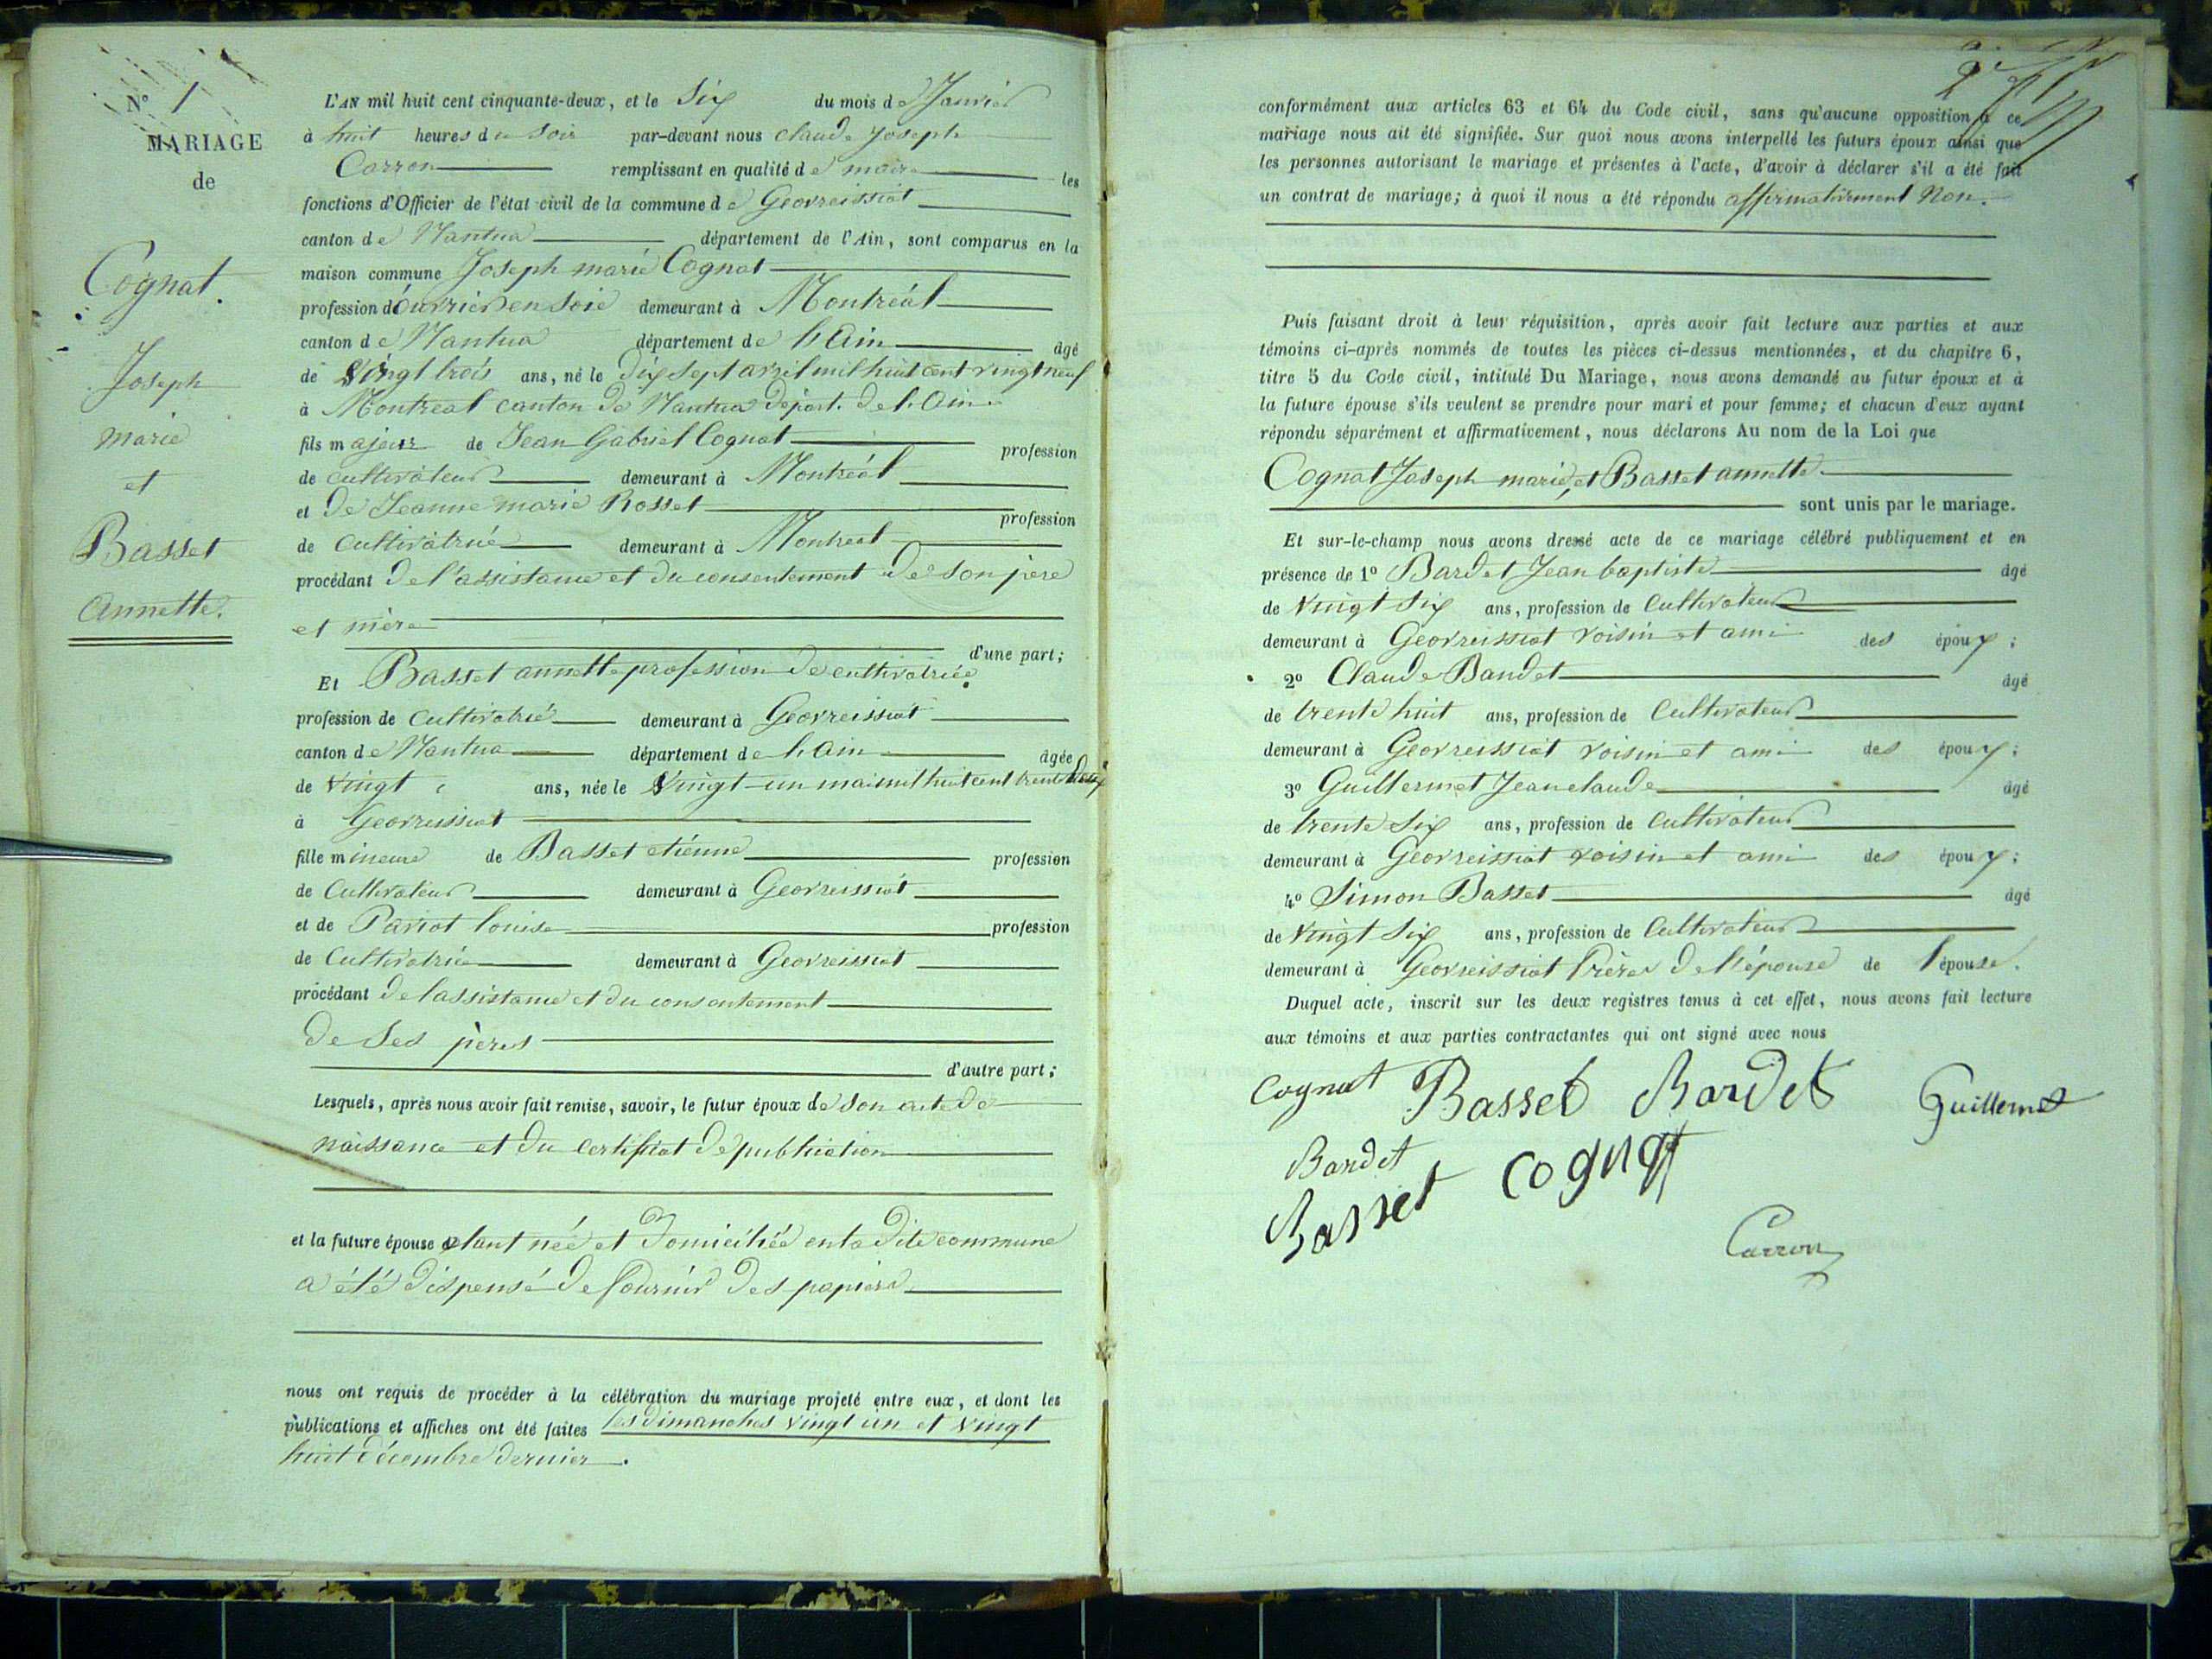 N° 1
MARIAGE
de
Cognat.
Joseph
marie
et
Basset
Annette.
L'AN mil huit cent cinquante-deux, et le Six du mois de Janvier
à huit heures du soir par-devant nous Claude Joseph
Carron remplissant en qualité de maire les
fonctions d'Officier de l'état civil de la commune de Geovreissiat
canton de Nantua département de l'Ain, sont comparus en la
maison commune Joseph marie Cognat
profession d'ouvrier en soie demeurant à Montréal
canton de Nantua département de l'Ain âgé
de vingt trois ans, né le dix sept avril mil huit cent vingt neuf
à Montreal canton de Nantua départ. de l'Ain
fils majeur de Jean Gabriel Cognat profession
de cultivateur demeurant à Montréal
et de Jeanne marie Rosset profession
de cultivatrice demeurant à Montreal
procédant de l'assistance et du consentement de son père
et mère
d'une part;
Et Basset annette profession de cultivatrice
profession de cultivatrice demeurant à Geovreissiat
canton de Nantua département de l'Ain âgée
de vingt ans, née le vingt-un mai mil huit cent trente
à Geovreissiat
fille mineure de Basset etiénne profession
de Cultivateur demeurant à Geovreissiat
et de Pariot louise profession
de Cultivatrice demeurant à Geovreissiat
procédant de lassistance et du consentement
de ses pères
d'autre part;
Lesquels, après nous avoir fait remise, savoir, le futur époux de son acte de
naissance et du certificat de publication
et la future épouse etant née et domiciliée en la dite commune
a été dispensé de fournir des papiers
nous ont requis de procéder à la célébration du mariage projeté entre eux, et dont les
publications et affiches ont été faites les dimanches vingt un et vingt
huit décembre dernier.
conformément aux articles 63 et 64 du Code civil, sans qu'aucune opposition à ce
mariage nous ait été signifiée. Sur quoi nous avons interpellé les futurs époux ainsi que
les personnes autorisant le mariage et présentes à l'acte, d'avoir à déclarer s'il a été fait
un contrat de mariage; à quoi il nous a été répondu affirmativement Non.
Puis faisant droit à leur réquisition, après avoir fait lecture aux parties et aux
témoins ci-après nommés de toutes les pièces ci-dessus mentionnées, et du chapitre 6,
titre 5 du Code civil, intitulé Du Mariage, nous avons demandé au futur époux et à
la future épouse s'ils veulent se prendre pour mari et pour femme; et chacun d'eux ayant
répondu séparément et affirmativement, nous déclarons Au nom de la Loi que
Cognat Joseph marie, et Basset annette
sont unis par le mariage.
Et sur-le-champ nous avons dressé acte de ce mariage célébré publiquement et en
présence de 1° Bardet Jean baptiste âgé
de vingt six ans, profession de Cultivateur
demeurant à Geovreissiat voisin et ami des époux;
2° Claude Bandet âgé
de trente huit ans, profession de Cultivateur
demeurant à Geovreissiat voisin et ami des époux;
3° Guillermet Jean claude âgé
de trente six ans, profession de Cultivateur
demeurant à Geovreissiat voisin et ami des époux;
4° Simon Basset âgé
de vingt six ans, profession de Cultivateur
demeurant à Geovreissiat frère de l'épouse de l'épouse.
Duquel acte, inscrit sur les deux registres tenus à cet effet, nous avons fait lecture
aux témoins et aux parties contractantes qui ont signé avec nous
Cognat Basset Bardet Guillermet
Bardet
Basset Cognat
Carron